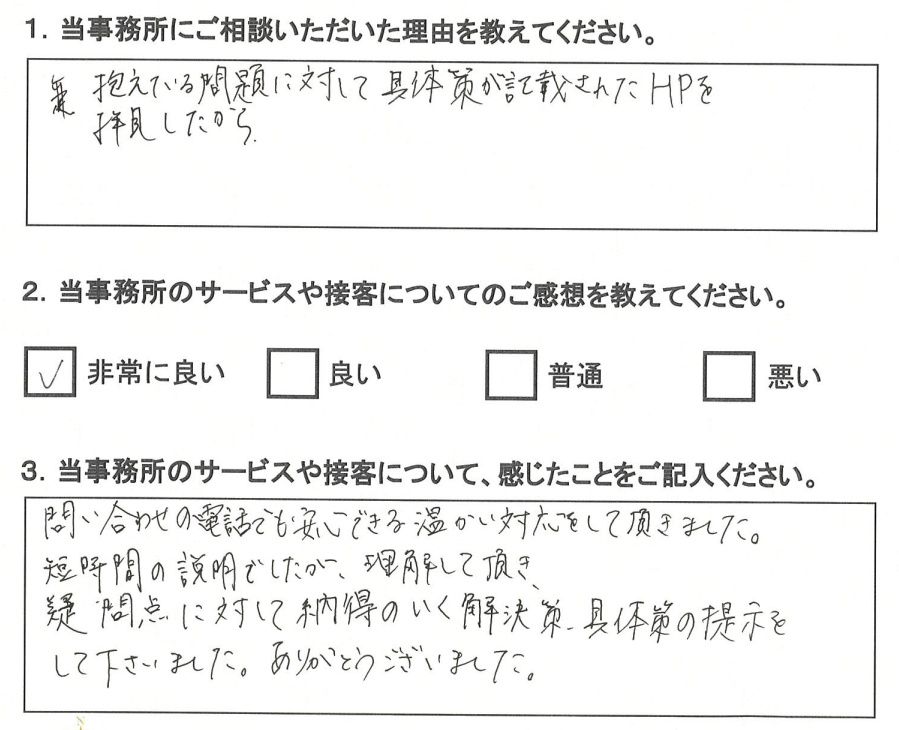 1. 当事務所にご相談いただいた理由を教えてください。
抱えている問題に対して具体策が記載されたHPを
拝見したから.
2. 当事務所のサービスや接客についてのご感想を教えてください。
✓ 非常に良い 良い 普通 悪い
3. 当事務所のサービスや接客について、感じたことをご記入ください。
問い合わせの電話でも安心できる温かい対応をして頂きました。
短時間の説明でしたが、理解して頂き、
疑問点に対して納得のいく解決策、具体策の提示を
して下さいました。ありがとうございました。